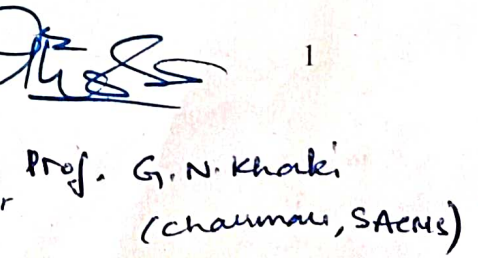 1
Prof. G.N. Khaki
r
(Chairman, SACMS)